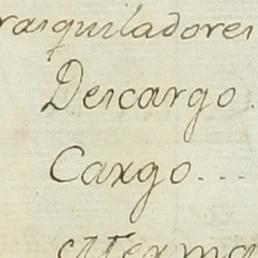 rasquiladores
Descargo.
Cargo...
Merma